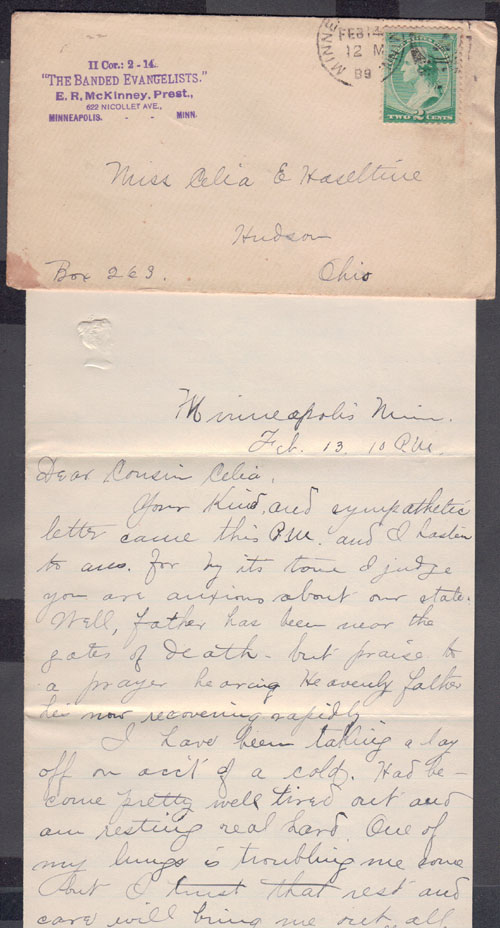 II Cor.: 2 - 14.
"THE BANDED EVANGELISTS."
E. R. McKinney, Prest.,
622 NICOLLET AVE.,
MINNEAPOLIS. - - MINN.
MINNE
FEB 14
12 M
89
TWO 2 CENTS
Miss Celia E Haseltine
Hudson
Box 263.
Ohio
Minneapolis Minn.
Feb. 13, 10 P.M.
Dear Cousin Celia,
Your Kind, and sympathetic
letter came this P.M. and I hasten
to ans. for by its tone I judge
you are anxious about our state.
Well, father has been near the
gates of death - but praise to
a prayer hearing Heavenly father
he's now recovering rapidly
I have been taking a lay
off on acct of a cold. Had be-
come pretty well tired out and
am resting real hard. One of
my lungs is troubling me some
but I trust that rest and
care will bring me out all